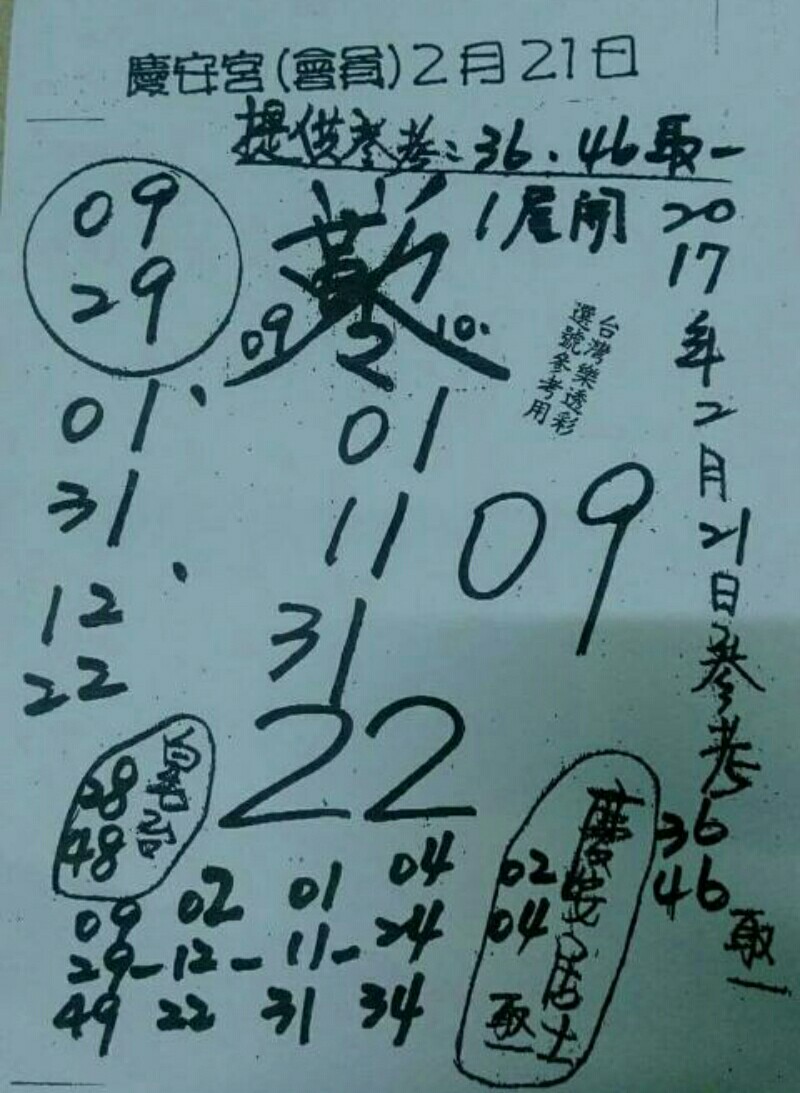 慶安宮(會員)2月21日
提供參考:36、46取一
1尾開
09
29
09
10.
台灣樂透彩
選號參考用
2017年2月21日參考
36
46
取一
01、
31
12
22
01
11
31
09
22
38
48
慶安居士
02
04
取一
09 02 01 04
29-12-11-24
49 22 31 34